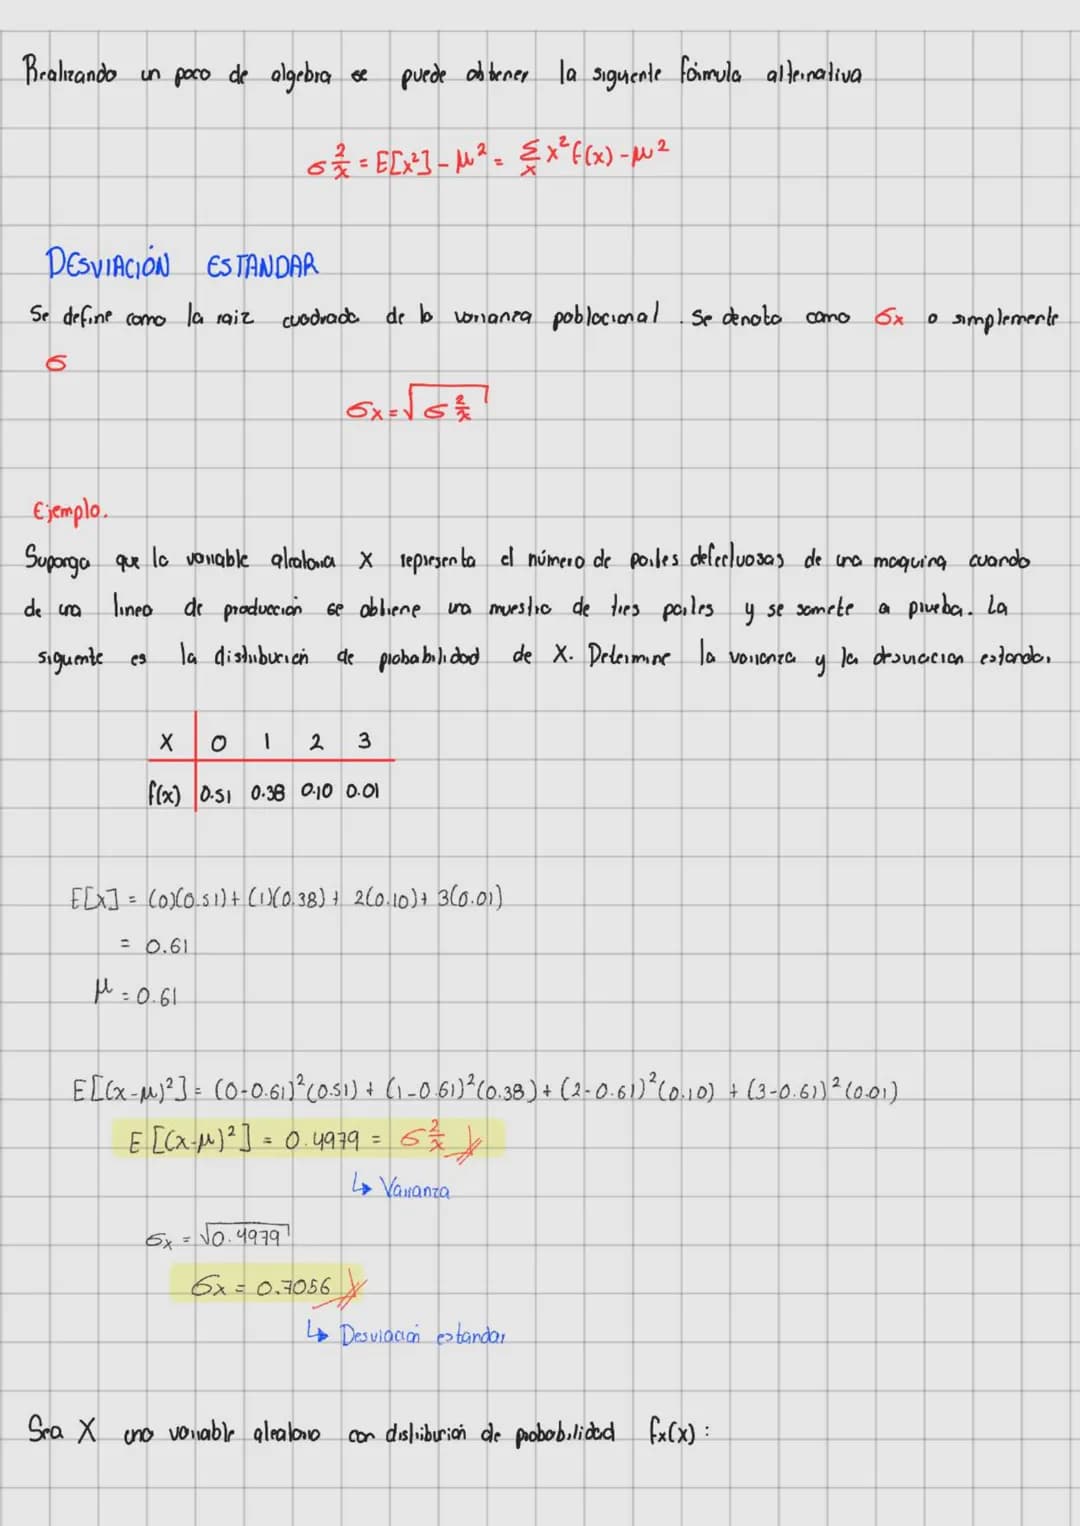 Realizando un poco de algebra se puede obtener la siguiente fórmula alternativa
σ²x = E[x²] - μ² = Σx x² f(x) - μ²
DESVIACIÓN ESTANDAR
Se define como la raiz cuadrada de la varianza poblacional. Se denota como σx o simplemente
σ
σx = √σ²x
Ejemplo.
Suponga que la variable aleatoria X representa el número de partes defectuosas de una maquina cuando
de una linea de producción se obtiene una muestra de tres partes y se somete a prueba. La
siguiente es la distribución de probabilidad de X. Determine la varianza y la desviacion estandar.
X 0 1 2 3
f(x) 0.51 0.38 0.10 0.01
E[X] = (0)(0.51) + (1)(0.38) + 2(0.10) + 3(0.01)
= 0.61
μ = 0.61
E[(x-μ)²] = (0-0.61)²(0.51) + (1-0.61)²(0.38) + (2-0.61)²(0.10) + (3-0.61)²(0.01)
E[(x-μ)²] = 0.4979 = σ²x
↳ Varianza
σx = √0.4979
σx = 0.7056
↳ Desviación estandar
Sea X una variable aleatoria con distribución de probabilidad fx(x) :